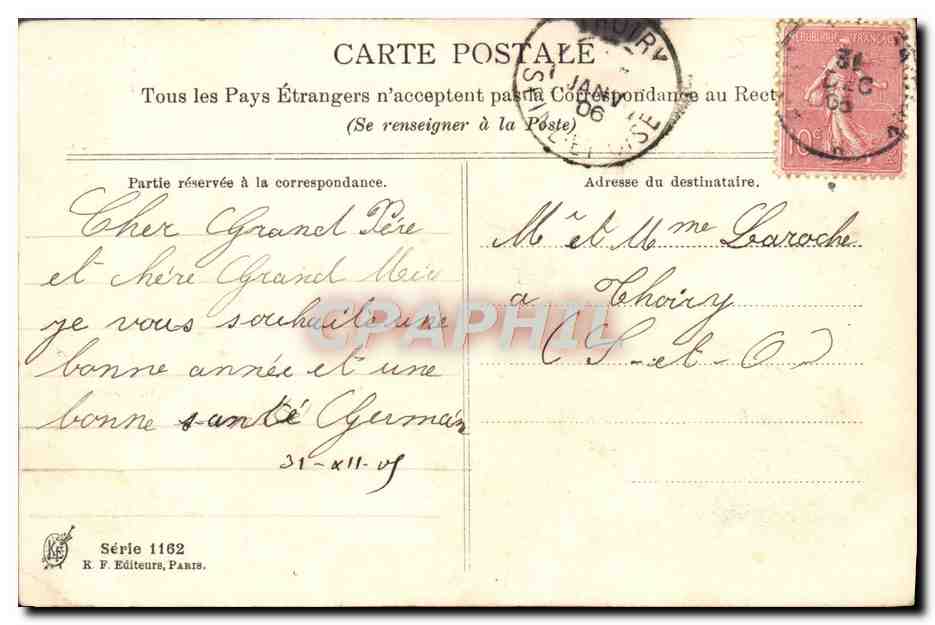 CARTE POSTALE
Tous les Pays Étrangers n'acceptent pas la Correspondance au Rect
(Se renseigner à la Poste)
THOIRY
1
JANV
06
SEINE-ET-OISE
REPUBLIQUE FRANÇAISE
31
DEC
05
10c
Partie réservée à la correspondance.
Cher Grand Père
et chère Grand Mère
je vous souhaite une
bonne année et une
bonne santé Germain
31-XII-05
Adresse du destinataire.
Mr et Mme Laroche
a Thoiry
(S-et-O)
CPAPHIL
KF
Série 1162
K. F. Editeurs, PARIS.